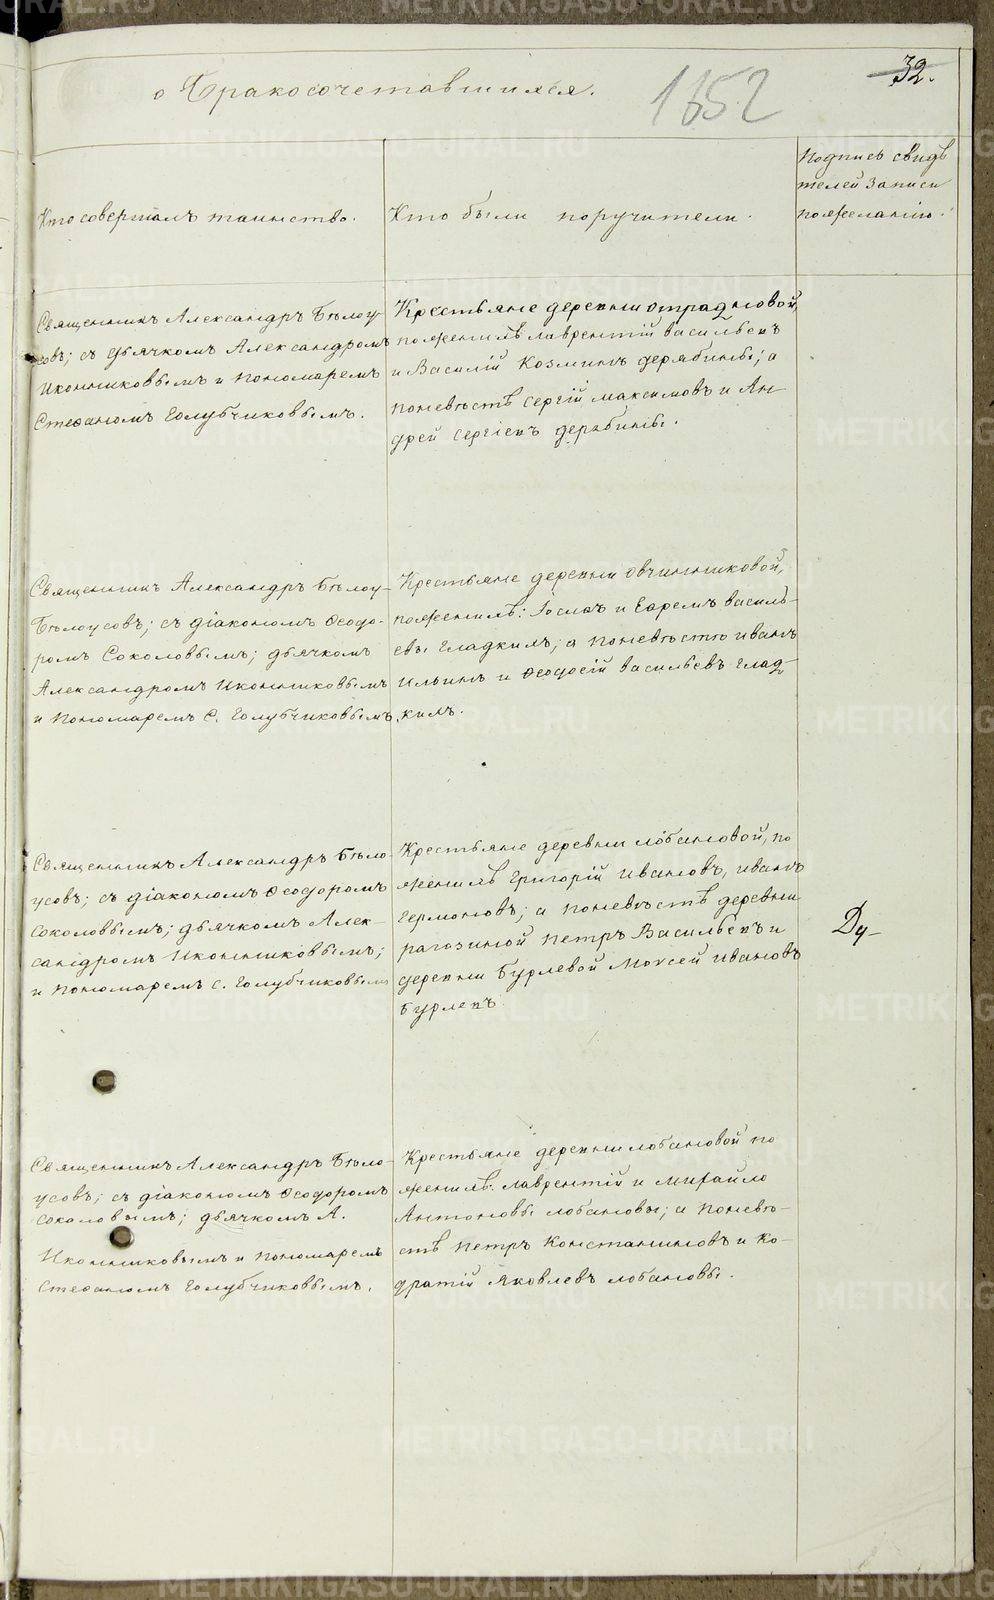 о Бракосочетавшихся.
1652
32.
Кто совершалъ таинство.
Кто были поручители.
Подпись свидѣ
телей записи
по желанію.
Священникъ Александръ Бѣлоу
совъ; съ дьячкомъ Александромъ
Иконниковымъ и пономаремъ
Стефаномъ Голубчиковымъ.
Крестьяне деревни Отрадновой,
по женихѣ Лаврентій Васильевъ
и Василій Козминъ Дерябины; а
по невѣстѣ Сергій Максимовъ и Ан-
дрей Сергіевъ Дерябины.
Священникъ Александръ Бѣлоу-
Бѣлоусовъ; съ діакономъ Ѳеодо-
ромъ Соколовымъ; дьячкомъ
Александромъ Иконниковымъ
и пономаремъ С. Голубчиковымъ.
Крестьяне деревни Овчинниковой,
по женихѣ: и Ефремъ Василь-
евы Гладкихъ; а по невѣстѣ Иванъ
Ильинъ и Ѳеодосій Васильевъ Глад-
кихъ.
Священникъ Александръ Бѣло-
усовъ; съ діакономъ Ѳеодоромъ
Соколовымъ; дьячкомъ Алек-
сандромъ Иконниковымъ;
и пономаремъ С. Голубчиковымъ
Крестьяне деревни Лобановой, по
женихѣ Григорій Ивановъ, Иванъ
Гермоновъ; а по невѣстѣ деревни
Рагозиной Петръ Васильевъ и
деревни Бурлевой Моѵсей Ивановъ
Бурлевъ
Ду-
Священникъ Александръ Бѣло-
усовъ; съ діакономъ Ѳеодоромъ
Соколовымъ; дьячкомъ А.
Иконниковымъ и пономаремъ
Стефаномъ Голубчиковымъ.
Крестьяне деревни Лобановой по
женихѣ: Лаврентій и Михайло
Антоновы Лобановы; а по невѣ-
стѣ Петръ Константиновъ и Ко-
дратій Яковлевъ Лобановы.
METRIKI.GASO-URAL.RU